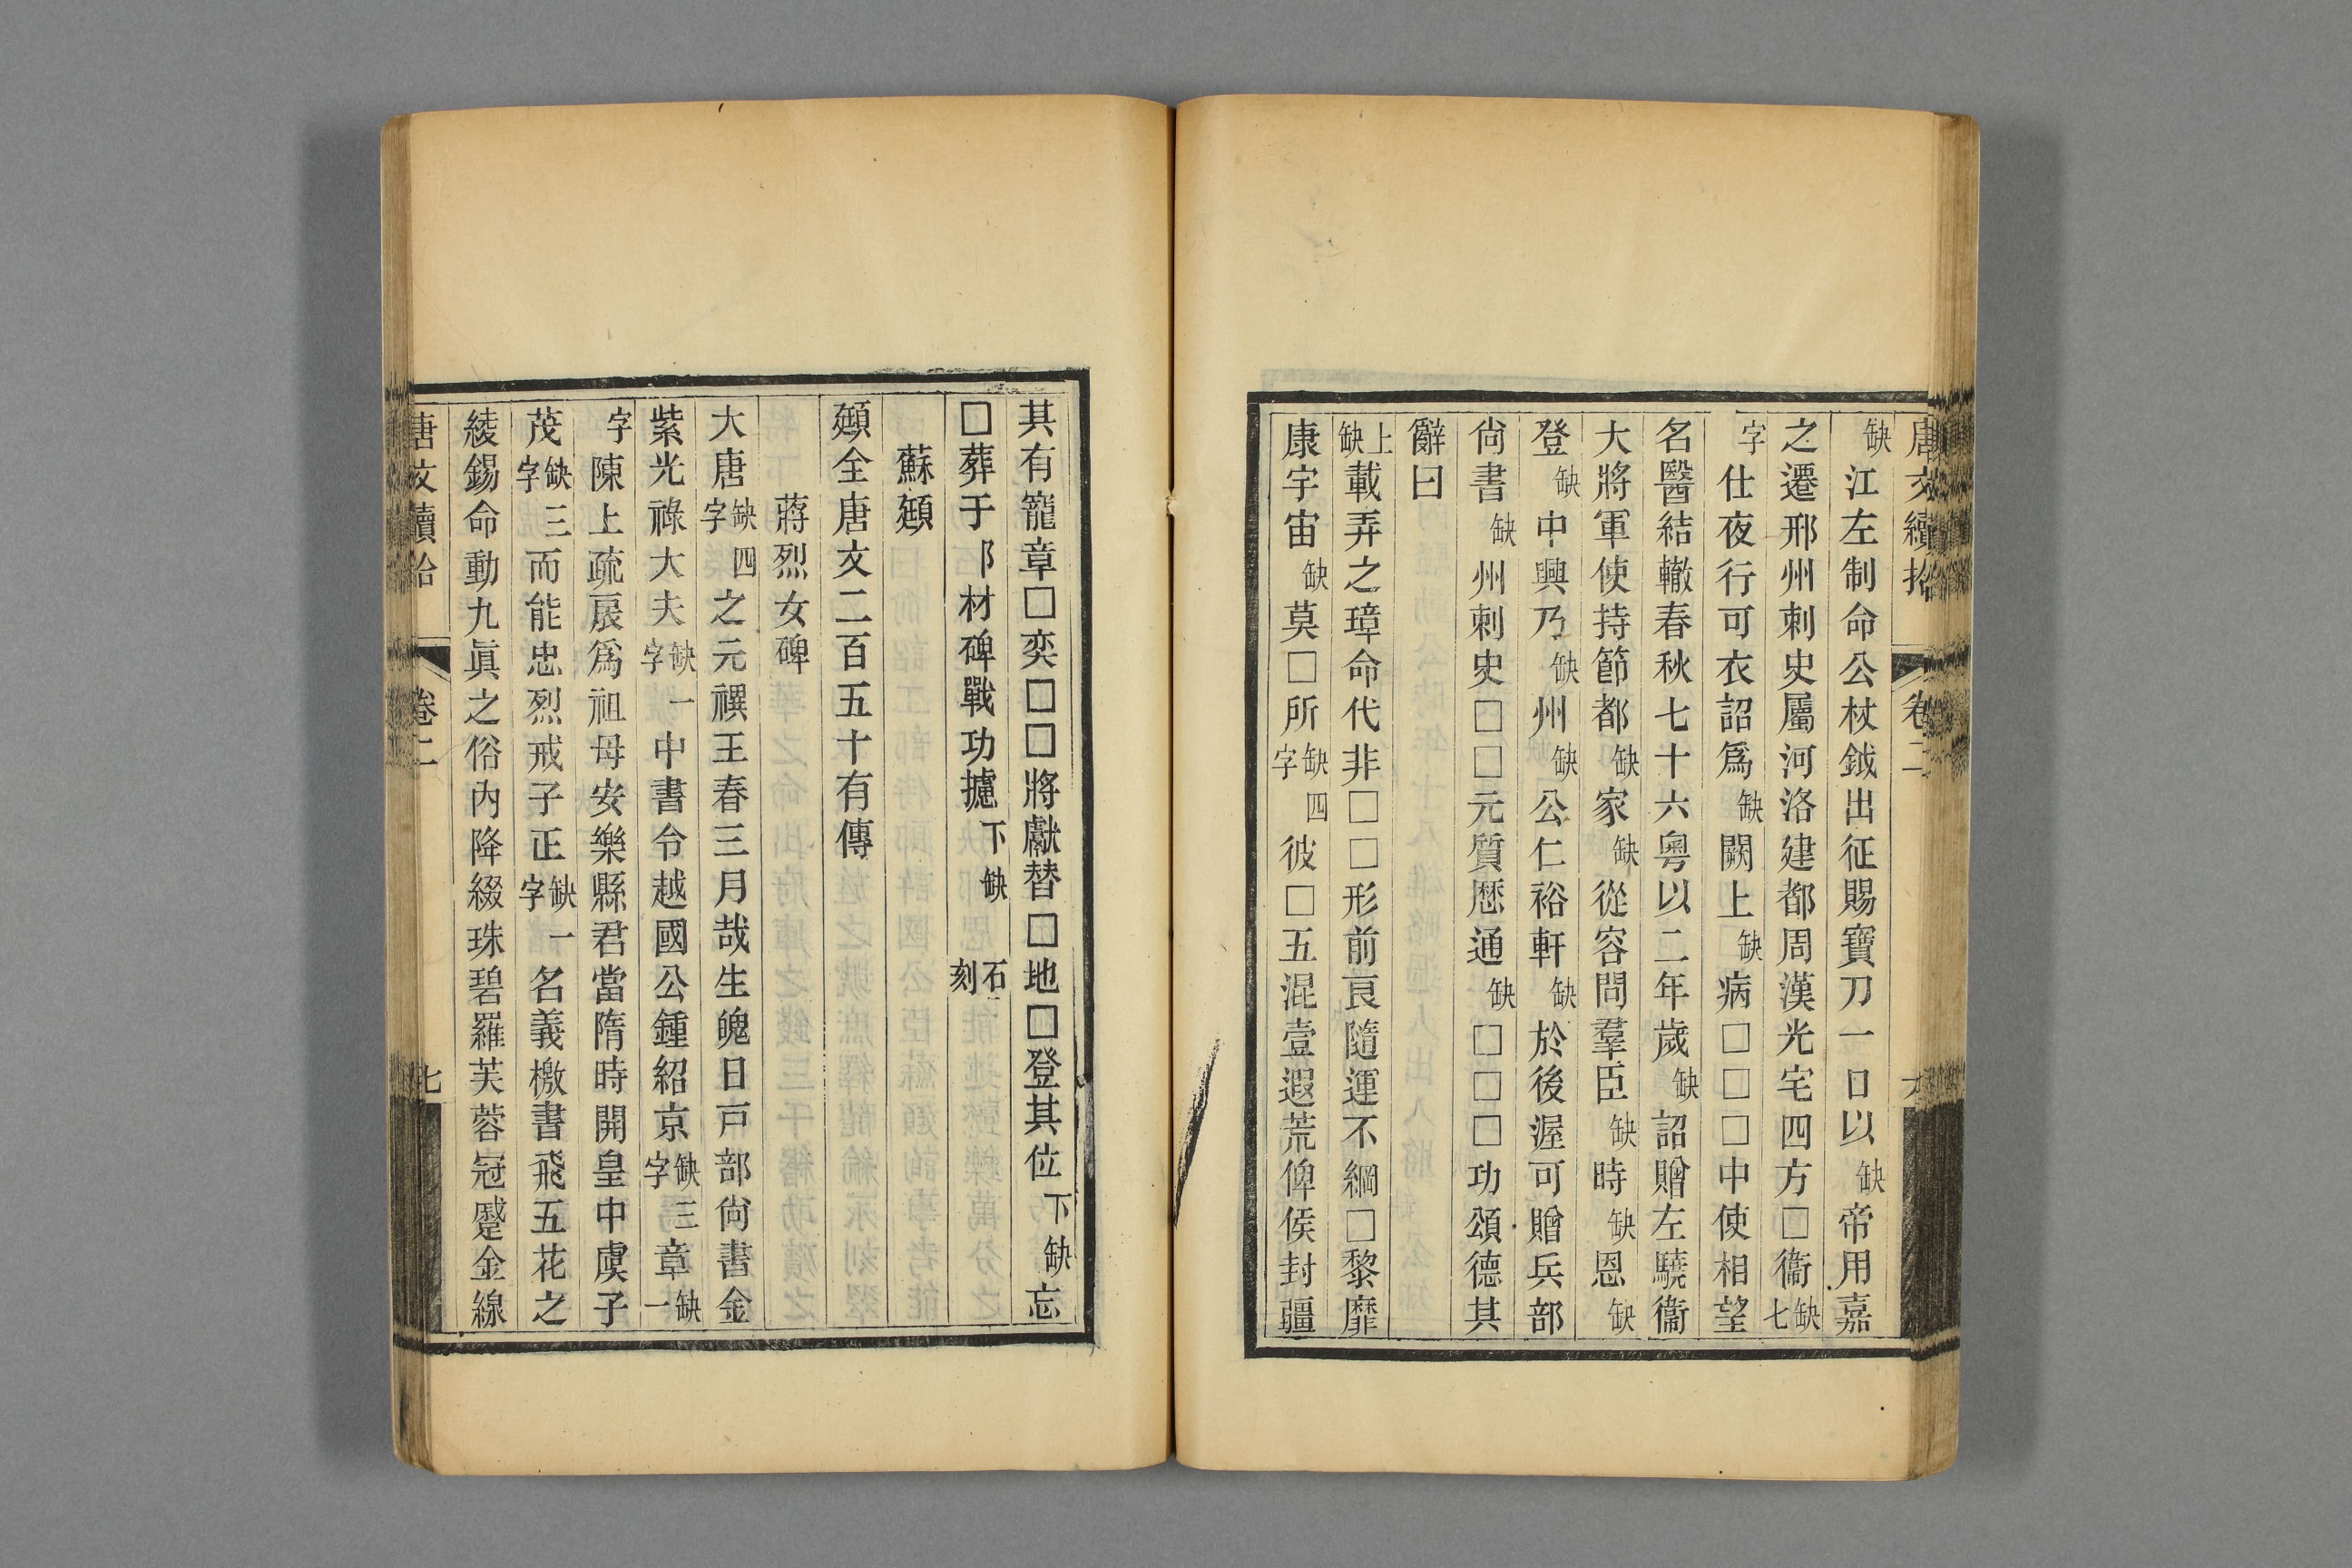 唐文續拾 卷二
缺江左制命公杖鉞出征賜寶刀一口以缺帝用嘉
之遷邢州刺史屬河洛建都周漢光宅四方□衞缺七
字仕夜行可衣詔爲缺闕上缺病□□□中使相望
名醫結轍春秋七十六粵以二年歲缺詔贈左驍衞
大將軍使持節都缺家缺從容問羣臣缺時缺恩缺
登缺中興乃缺州缺公仁裕軒缺於後渥可贈兵部
尙書缺州刺史□□元質歷通缺□□□功頌德其
辭曰
上缺載弄之璋命代非□□形前哀隨運不綱□黎靡
康宇宙缺莫□所缺四字彼□五混壹遐荒俾侯封疆
其有寵章□奕□□將獻替□地□登其位下缺忘
□葬于阝材碑戰功攄下缺 石刻
蘇頲
頲全唐文二百五十有傳
蔣烈女碑
大唐缺四字之元禩王春三月哉生魄日戸部尙書金
紫光祿大夫缺一字中書令越國公鍾紹京缺三字章缺一
字陳上疏扆爲祖母安樂縣君當隋時開皇中虞子
茂缺三字而能忠烈戒子正缺一字名義檄書飛五花之
綾錫命動九眞之俗內降綴珠碧羅芙蓉冠蹙金線
唐文續拾 卷二 七